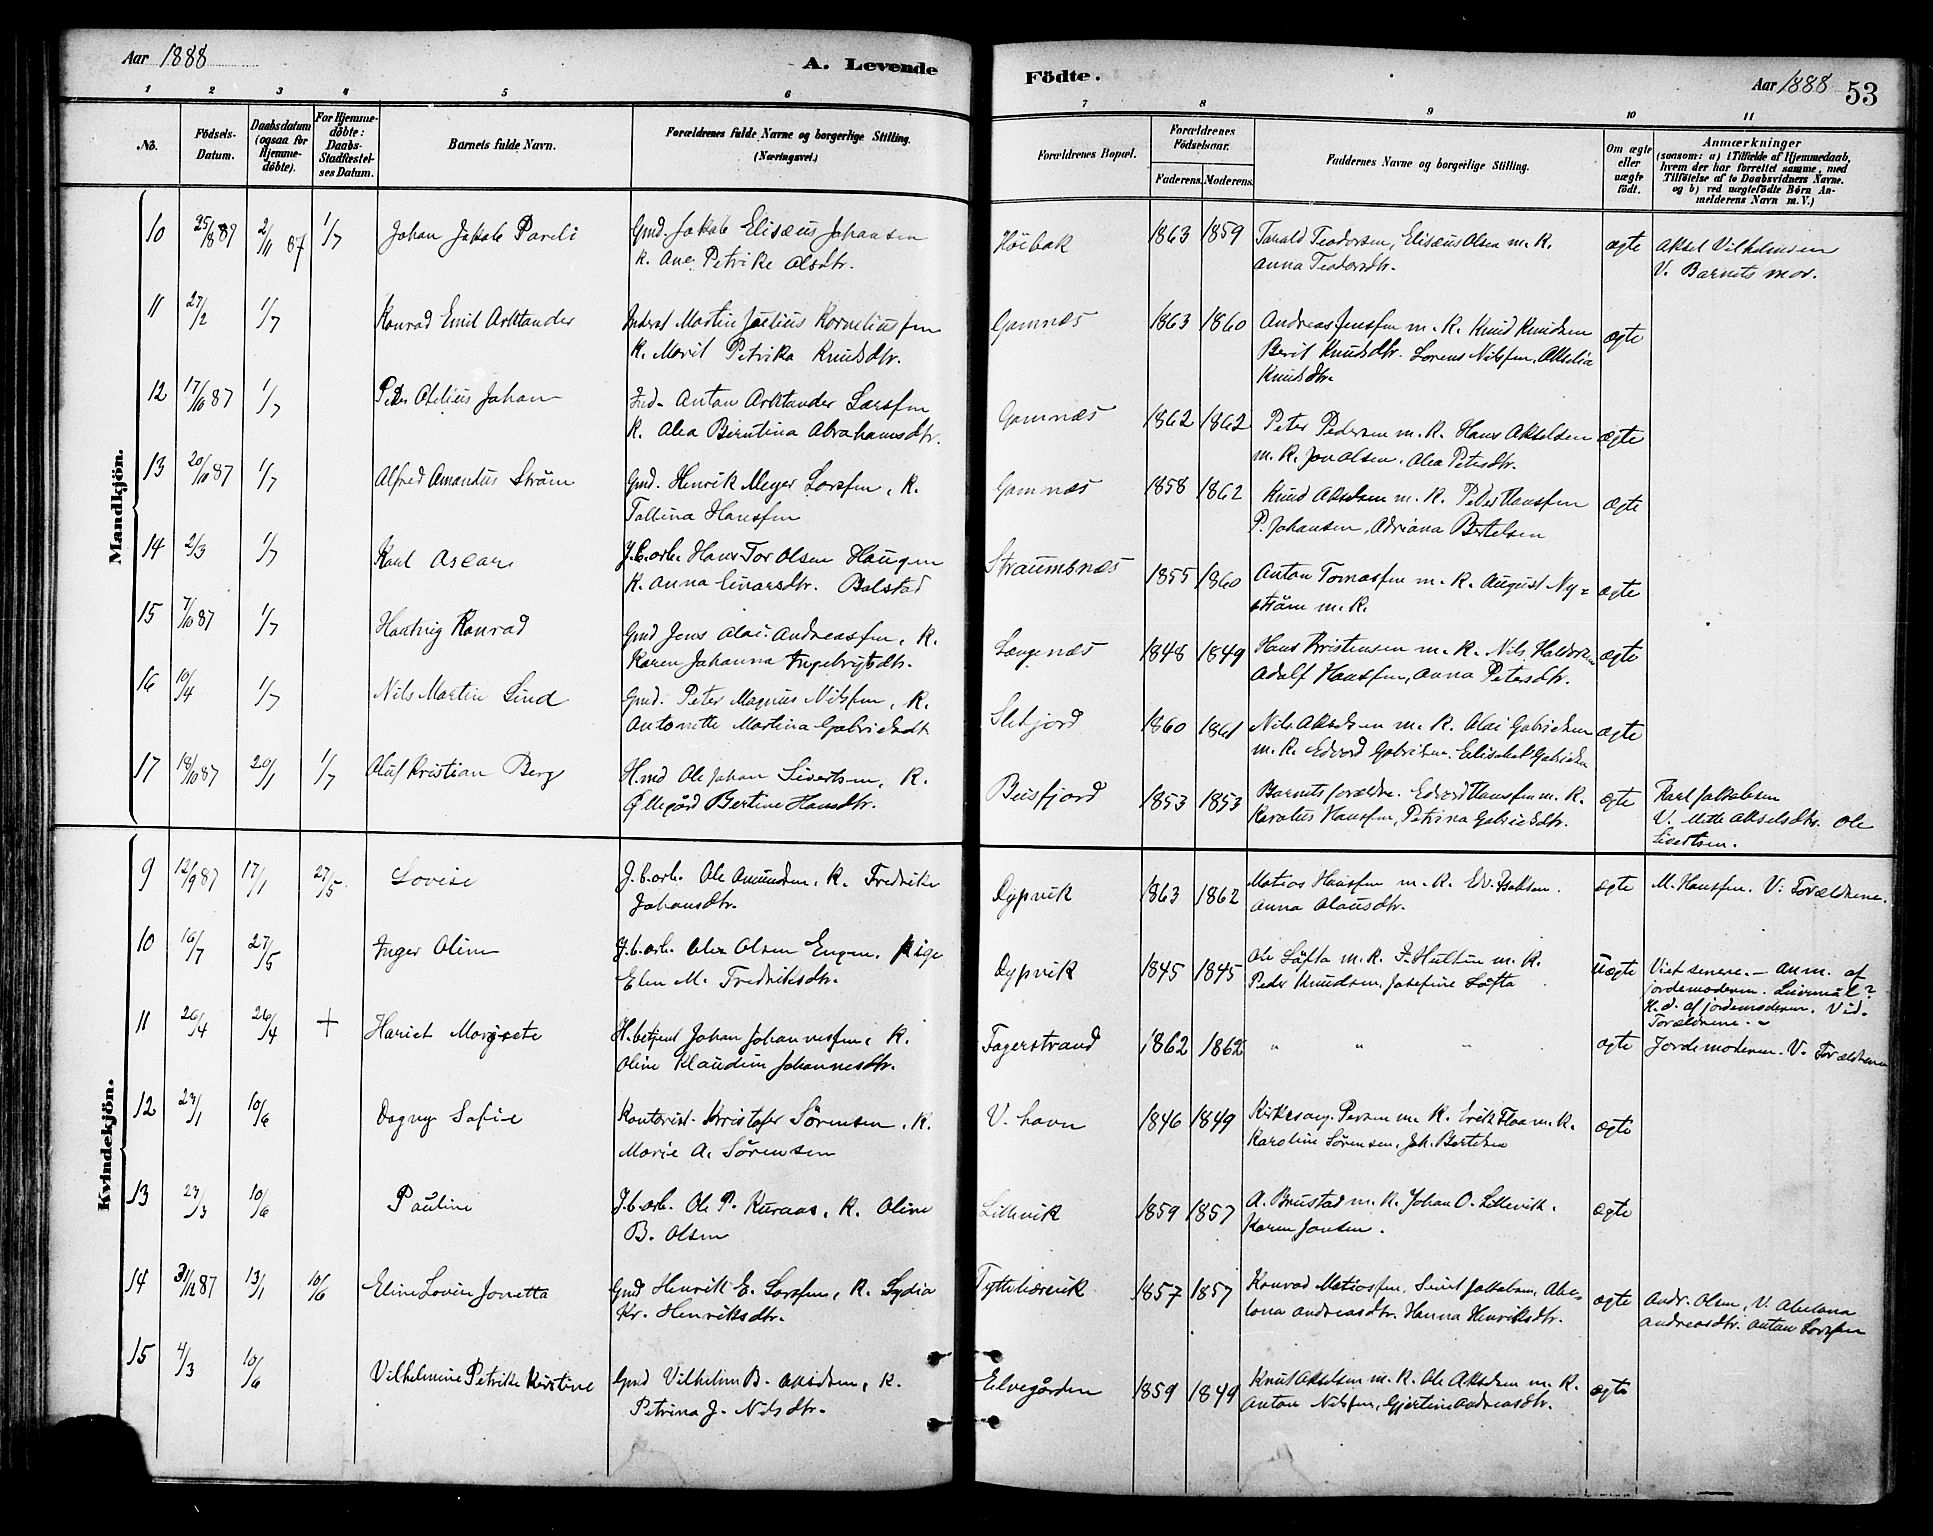 Aar 1888
A. Levende
Födte.
Aar 1888
53
1 2 3 4 5 6 7 8 9 10 11
No.
Födsels-
Datum.
Daabsdatum
(ogsaa for
Hjemme-
döbte).
For Hjemme-
döbte:
Daabs-
Stadfæstel-
ses Datum.
Barnets fulde Navn.
Forældrenes fulde Navne og borgerlige Stilling.
(Næringsvei.)
Forældrenes Bopæl.
Forældrenes
Födselsaar.
Faderens. Moderens.
Faddernes Navne og borgerlige Stilling.
Om ægte
eller
uægte
født.
Anmærkninger
(saasom: a) i Tilfælde af Hjemmedaab,
hvem der har forrettet samme, med
Tilföielse af to Daabsvidners Navne.
og b) ved uægtefödte Börn An-
melderens Navn m. V.)
Mandkjön.
10 25/8 87 2/11 87 1/7 Johan Jakob Pareli Gmd. Jakob Elisæus Johansen Höibak 1863 1859 Tarald Teodorsen, Elisæus Olsen m. K. ægte Aksel Vilhelmsen
K. Ane Petrike Olsdtr. Anna Teodorsdtr. V. Barnets mor.
11 27/2 1/7 Konrad Emil Arktander Inderst Martin Julius Korneliussen Gamnæs 1863 1860 Andreas Jenssen m. K. Knud Knudsen ægte
K. Marit Petrika Knudsdtr. Berit Knudsdtr. Lorens Nilssen, Akselia
Knudsdtr.
12 17/10 87 1/7 Peder Johan Ind. Anton Arktander Larssen Gamnæs 1862 1862 Peter Pedersen m. K. Hans Akselsen ægte
K. Alea Berntina Abrahamsdtr. m. K. Jon Olsen, Alea Petersdtr.
13 20/10 87 1/7 Alfred Amandus Ström Gmd. Henrik Meyer Larssen, K. Gamnæs 1858 1862 Knud Akselsen m. K. Peder Hanssen ægte
Tallina Hanssen P. Johansen, Adriana Bertelsen
14 2/3 1/7 Karl Oscar J.b.arb. Hans Tor Olsen Haugen Straumsnæs 1855 1860 Anton Tomassen m. K. August Ny= ægte
K. Anna Einarsdtr. Balstad ström m. K.
15 7/10 87 1/7 Hartvig Konrad Gmd Jens Olai Andreassen, K. Langenæs 1848 1849 Hans Kristensen m. K. Nils Haldorsen ægte
Karen Johanna Ingebrigtsdtr. Adolf Hanssen, Anna Petersdtr.
16 10/4 1/7 Nils Martin Lind Gmd. Peter Magnus Nilssen, K. Slitjord 1860 1861 Nils Akselsen m. K. Olai Gabrielsen ægte
Antonette Martina Gabrielsdt. m. K. Edvard Gabrielsen. Elisabet Gabrielsen
17 18/10 87 20/1 1/7 Oluf Kristian Berg H.md Ole Johan Sivertsen, K. Beisfjord 1853 1853 Barnets forældre. Edvard Hanssen m. K. ægte Karl Jakobsen
Øllegård Bertine Hansdtr. Karolus Hanssen, Petrina Gabrielsdtr. V. Mette Akselsdtr. Ole
Sivertsen.
Kvindekjön.
9 12/9 87 17/1 27/5 Lovise J.b.arb. Ole Amundsen, K. Fredrike Dypvik 1863 1862 Matias Hanssen m. K. Edv. Isaksen. ægte M. Hanssen. V. Forældrene.
Johansdtr. Anna Olausdtr.
10 16/7 27/5 Inger Oline J.b.arb. Ole Olsen Engen, Pige Dypvik 1845 1845 Ole Löfta m. K. F. Hultin m. K. Uægte Viet senere. – Anm. af
Elen M. Fredriksdtr. Peder Knudsen, Josefine Löfta jordemoderen. Leiermål?
H.d. af jordemoderen. Vid.
Forældrene.
11 26/4 26/4 + Hariet Margrete H.betjent Johan Johannessen, K. Fagerstrand 1862 1862 " " " ægte Jordemoderen. V. Forældrene
Oline Klaudine Johannesdtr.
12 27/1 10/6 Dagny Sofie Kontorist Kristofer Sörensen, K. V. havn 1846 1849 Kirkesang. Persen m. K. Erik Flaa m. K. ægte
Marie A. Sörensen Karoline Sörensen, Joh. Bertelsen
13 27/3 10/6 Pauline J.b.arb. Ole P. Kuraas, K. Oline Lillevik 1859 1857 A. Brustad m. K. Johan O. Lillevik. ægte
B. Olsen Karen Jonsen.
14 31/12 87 13/1 10/6 Eline Lovise Jonetta Gmd Henrik E. Larssen, K. Lydia Tyttebærvik 1857 1857 Konrad Matiassen, Sivert Jakobsen, Abe- ægte Andr. Olsen, V. Abelona
Kr. Henriksdtr. lona Andreasdtr. Hanna Henriksdtr. Andreasdtr. Anton Larssen
15 4/3 10/6 Vilhelmine Petrikke Kirstine Gmd Vilhelm B. Akselsen, K. Elvegården 1859 1849 Knut Akselsen m. K. Ole Akselsen m. K. ægte
Petrina J. Nilsdtr. Anton Nilssen, Gjertine Andreasdtr.